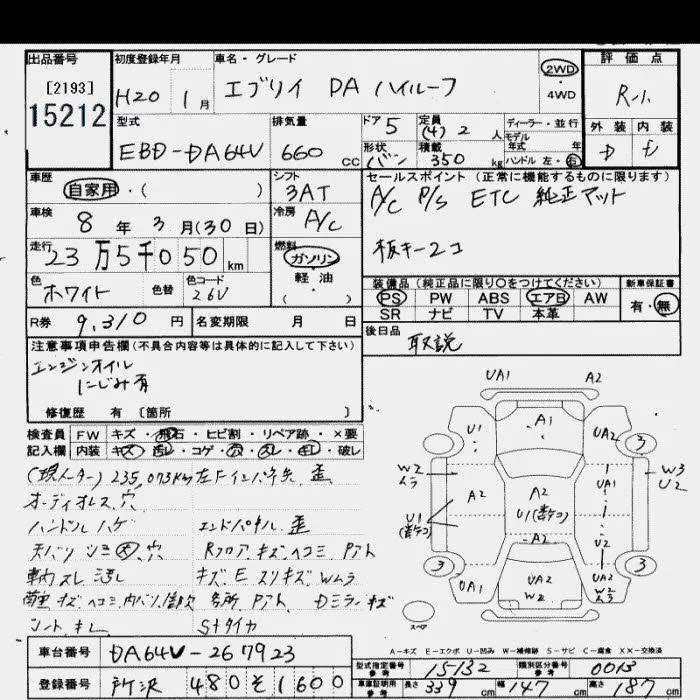 出品番号
[2193]
15212
初度登録年月
H20 1月
車名・グレード
エブリイ DA ハイルーフ
2WD
・
4WD
評価点
R-1.
外装 内装
D D
型式
EBD-DA64V
排気量
660 CC
ドア 5
形状 バン
定員 (4) 2 人
積載 350 kg
ディーラー・並行
モデル年式 年
ハンドル 左・右
車歴
自家用・( )
シフト
3AT
車検
8年 3月(30日)
冷房 A/C
走行
23万5千050 km
燃料
ガソリン
軽油
( )
色
ホワイト
色替
色コード
26V
R券 9,310 円
名変期限 月 日
セールスポイント(正常に機能するものに限ります)
A/C P/S ETC 純正マット
板キー2コ
装備品(純正品に限り〇をつけてください)
PS PW ABS エアB AW
SR ナビ TV 本革
新車保証書
有・無
後日品
取説
注意事項申告欄(不具合内容等は具体的に記入して下さい)
エンジンオイル
にじみ有
修復歴 有〔箇所 〕
検査員記入欄
FW キズ・飛石・ヒビ割・リペア跡・×要
内装 キズ・汚レ・コゲ・穴・スレ・キレ・破レ
(現メーター)235,073km 左Fインパネ先.歪
オーディオレス.穴
ハンドルハゲ エンドパネル.歪
天バリ シミ 大.穴 Rフロア.キズ.ヘコミ Pアト
スレ 汚レ キズ.E スリキズ.Wムラ
キズ.ヘコミ.内バリ 各所.Pアト Dミラーキズ
シート.キレ Sタイヤ
UA1 A2
U1 A1 UA2 3
W2 ムラ
A2
A2
U1(多テコ)
UA1
W3
U2
U1
(多テコ)
A2
U2
3
UA1
UA2
W2
U2
UA1
W2
ムラ
3
スペア
A-キズ E-エクボ U-凹み W-補修跡 S-サビ C-腐食 XX-交換済
車台番号 DA64V-267923
登録番号 所沢 480 そ 1600
型式指定番号 参考 15132
類別区分番号 参考 0013
車庫証明用 参考 長さ 339 cm 幅 147 cm 高さ 187 cm